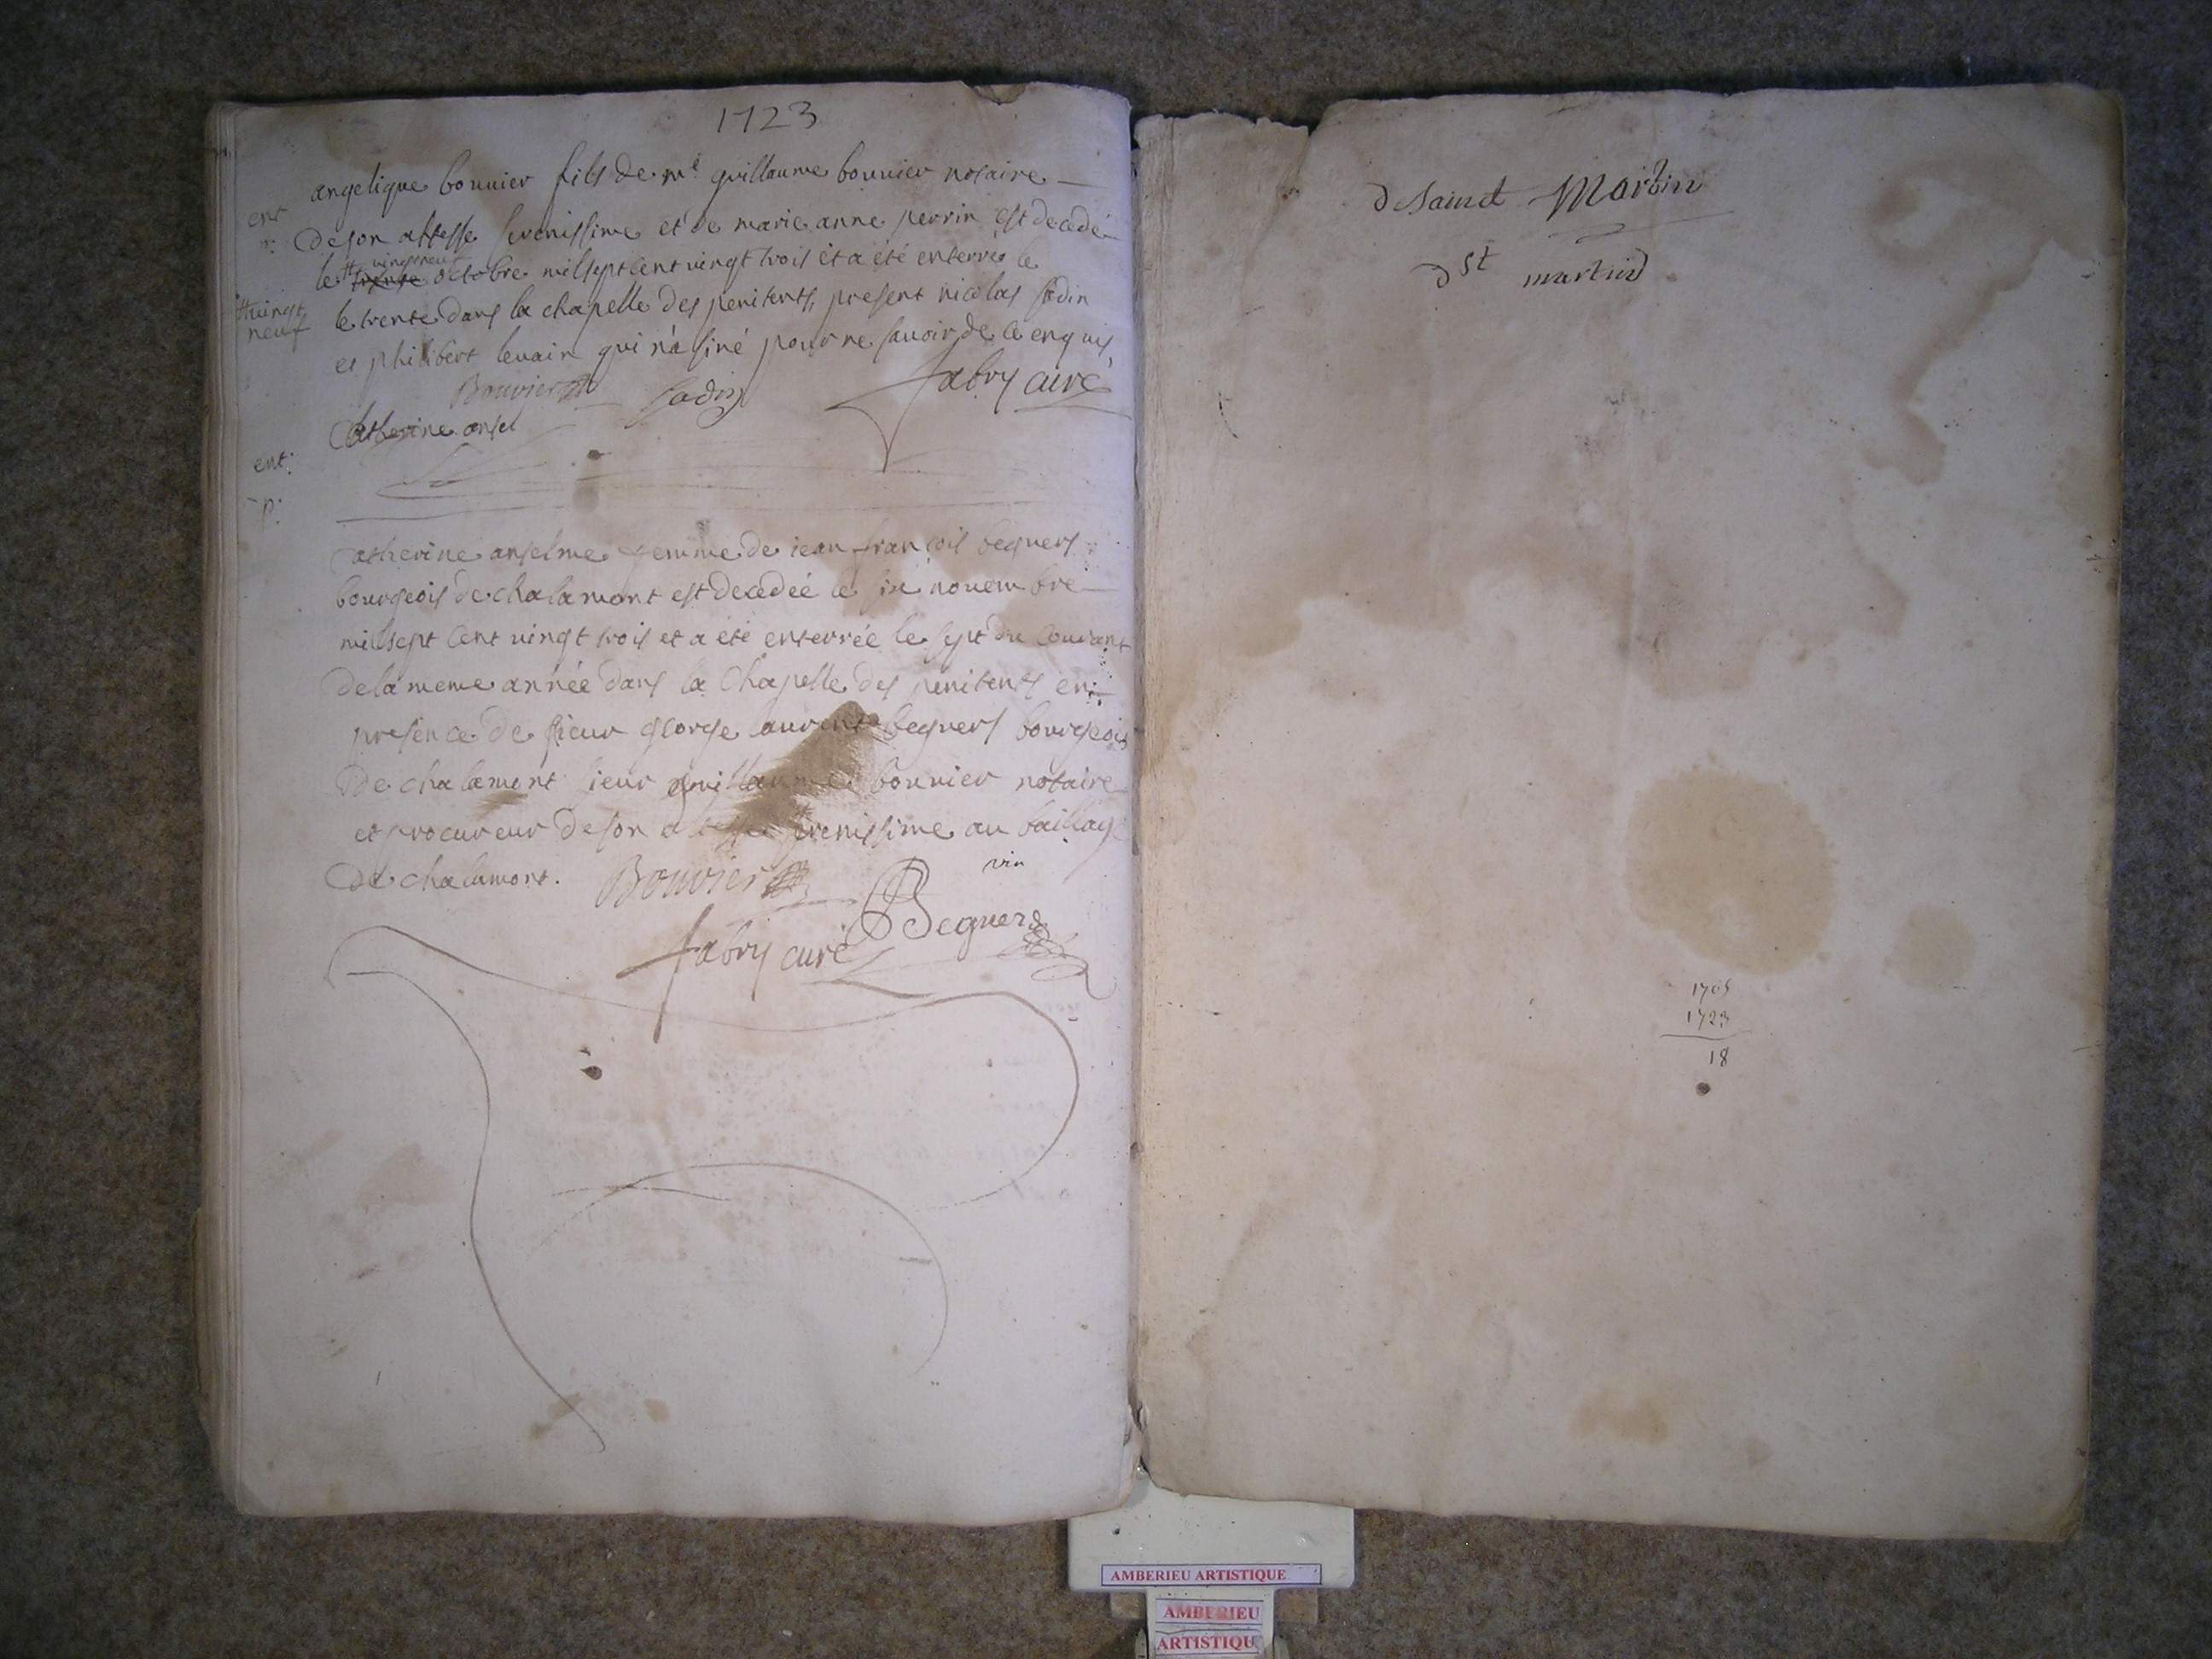 1723
ent
angelique bouvier fils de me guillaume bouvier notaire
de son altesse serenissime et de marie anne perrin est decedé
le trente vingtneuf octobre mil sept cent vingt trois et a été enterré le
vingt neuf
le trente dans la chapelle des penitents, present nicolas sadin
et philibert levain qui n'a siné pour ne savoir de ce enquis,
Bouvier sadin fabry curé
Catherine ansel
ent:
p:
Catherine anselme femme de jean françois beguers
bourgeois de chalamont est decedée le six novembre
mil sept cent vingt trois et a été enterrée le sept du courant
de la meme année dans la chapelle des penitents en
presence de sieur george laurent beguers bourgeois
de chalamont sieur guillaume bouvier notaire
et procureur de son altesse serenissime au baillage
de chalamont. Bouvier
vin
Beguers
fabry curé
d saint Martin
d st martin
1705
1723
18
AMBERIEU ARTISTIQUE
AMBERIEU
ARTISTIQU